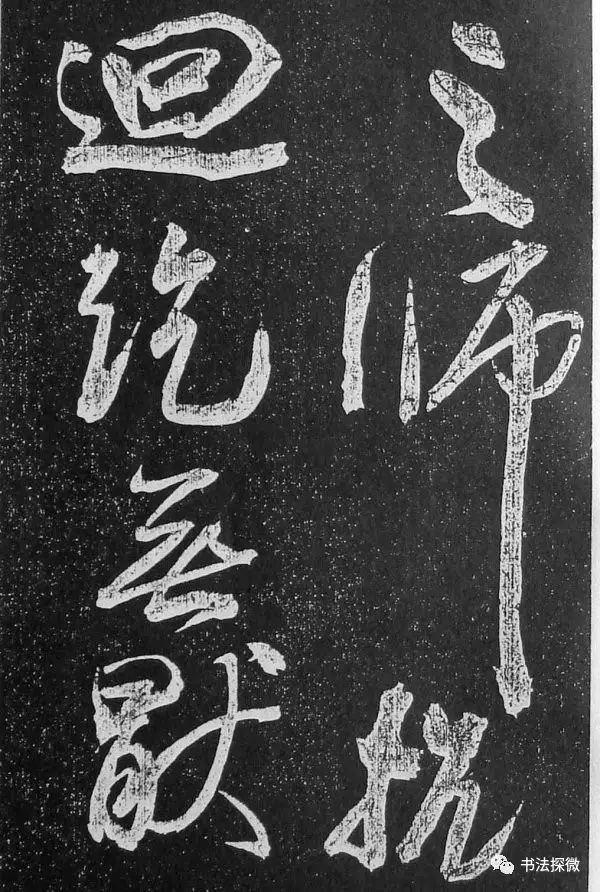 之師抗
迴紇無猒
书法探微